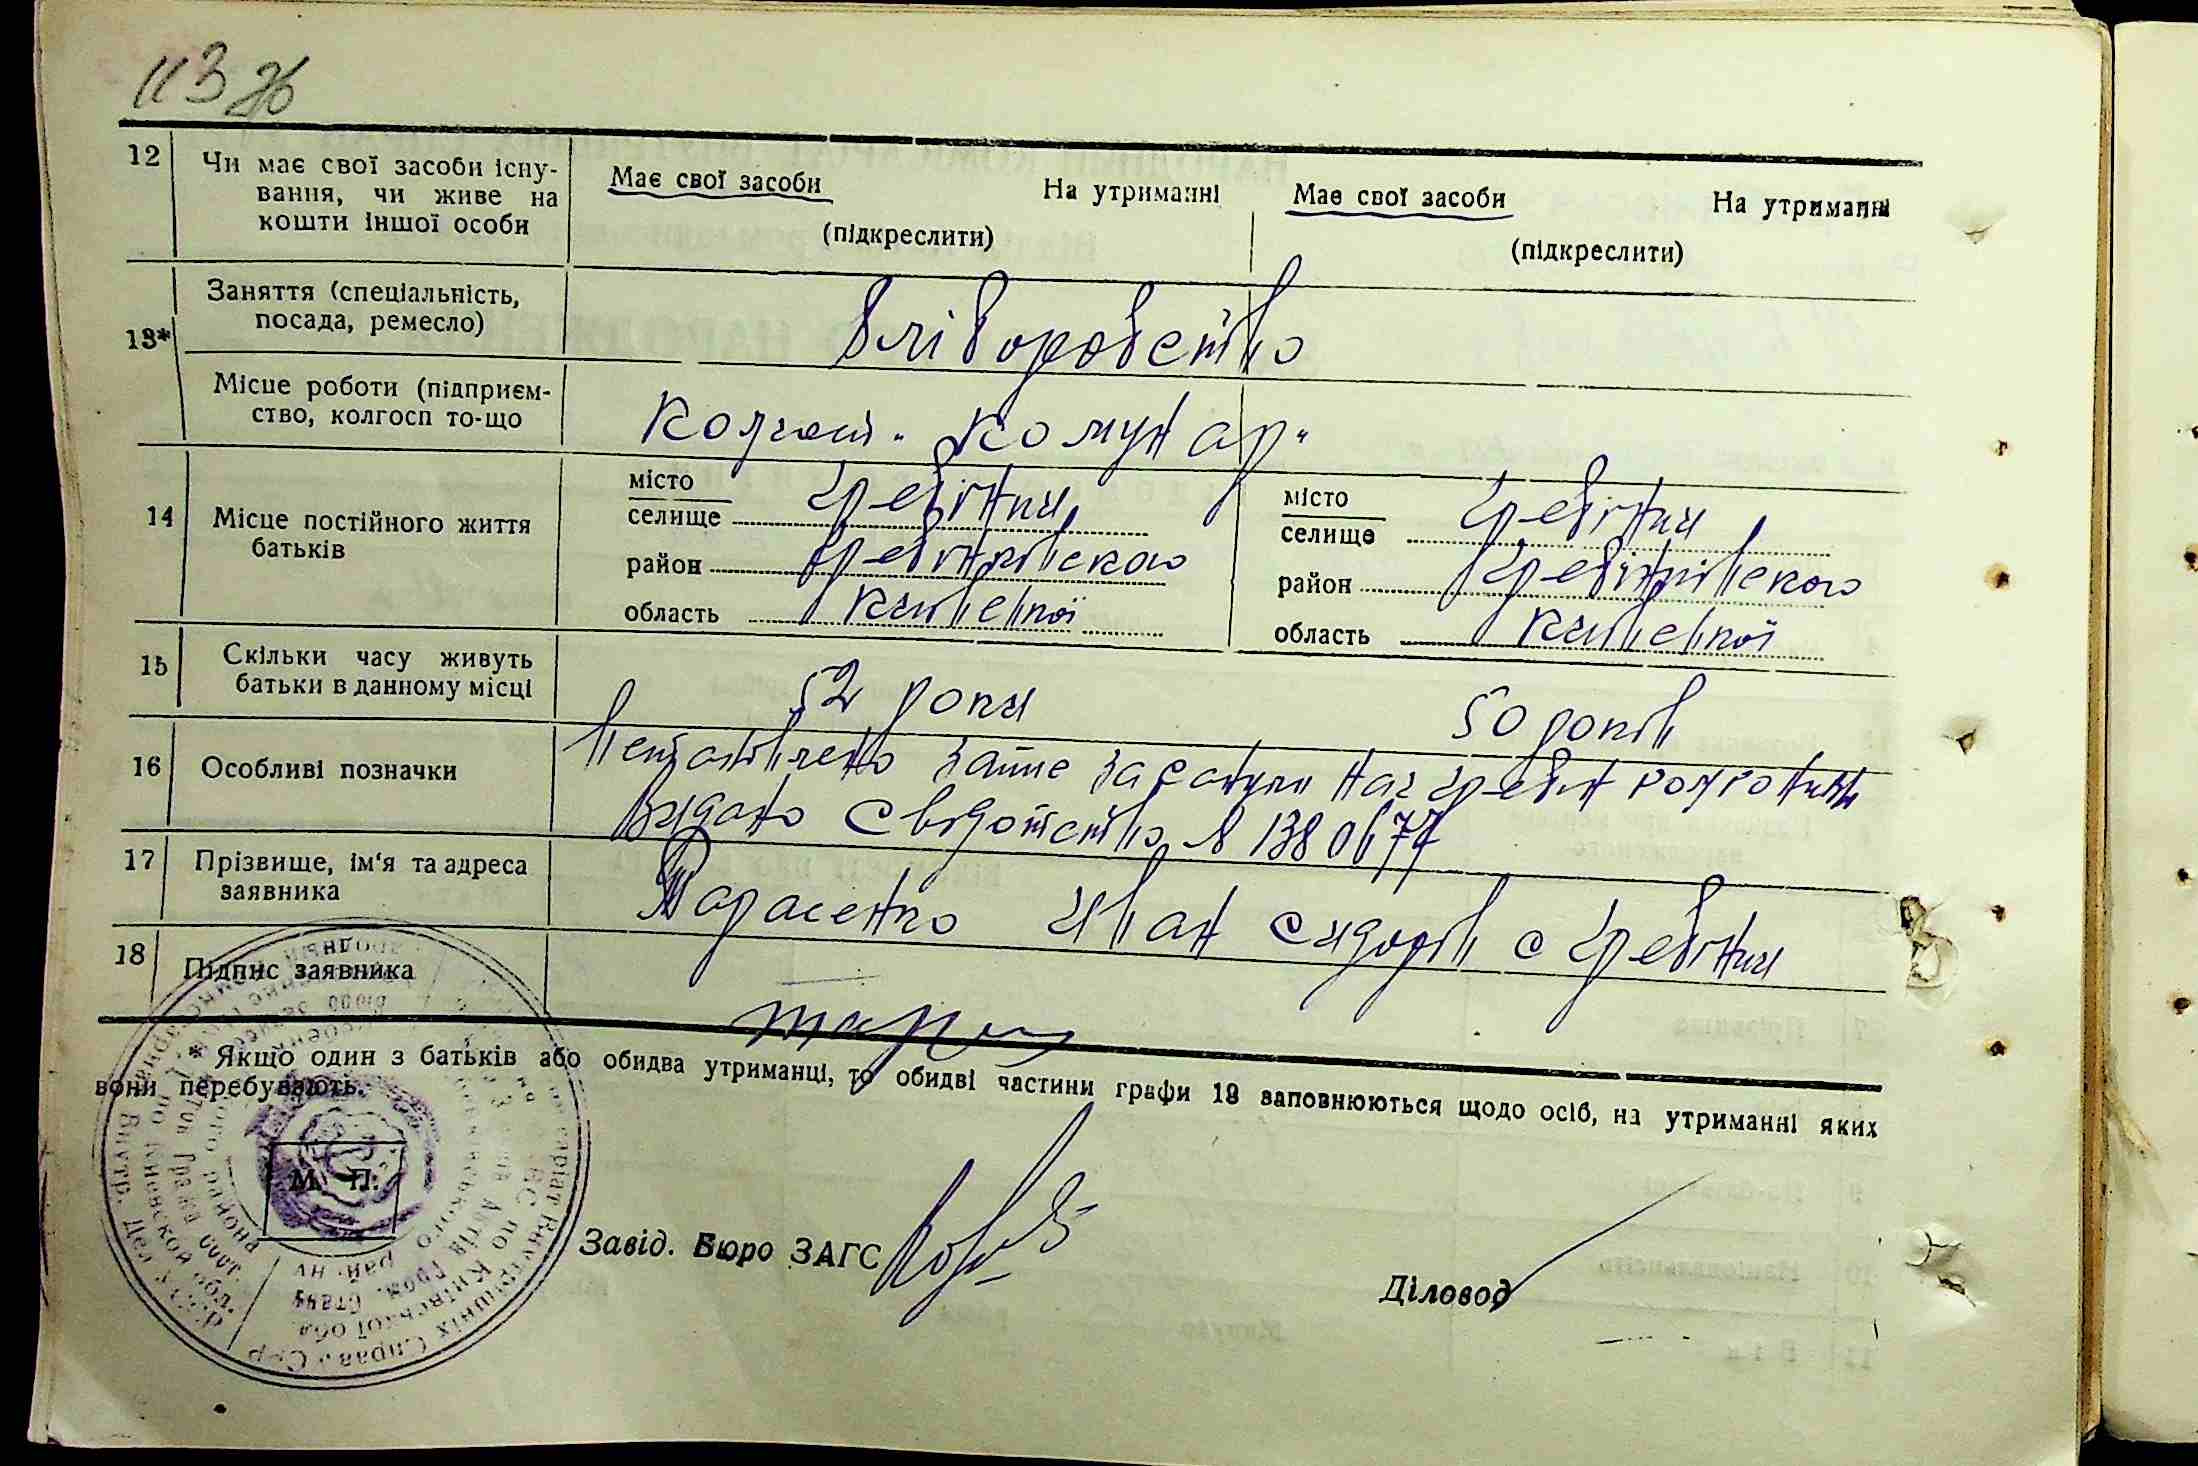 113 зв
12 Чи має свої засоби існу-
вання, чи живе на
кошти іншої особи
Має свої засоби На утриманні
(підкреслити)
Має свої засоби На утриманні
(підкреслити)
13* Заняття (спеціальність,
посада, ремесло)
Хліборобство
Місце роботи (підприєм-
ство, колгосп то-що
Колгосп "Комунар"
14 Місце постійного життя
батьків
місто
селище Гребінки
район Гребінківского
область Київської
місто
селище Гребінки
район Гребінківского
область Київської
15 Скільки часу живуть
батьки в данному місці
52 роки
50 років
16 Особливі позначки
Встановлено запис за
Видано свідотство №
17 Прізвище, ім'я та адреса
заявника
Тарасенко Иван Сидорів с Гребінки
18 Підпис заявника
* Якщо один з батьків або обидва утриманці, то обидві частини графи 13 заповнюються щодо осіб, на утриманні яких
вони перебувають.
М. П.
Завід. Бюро ЗАГС
Діловод